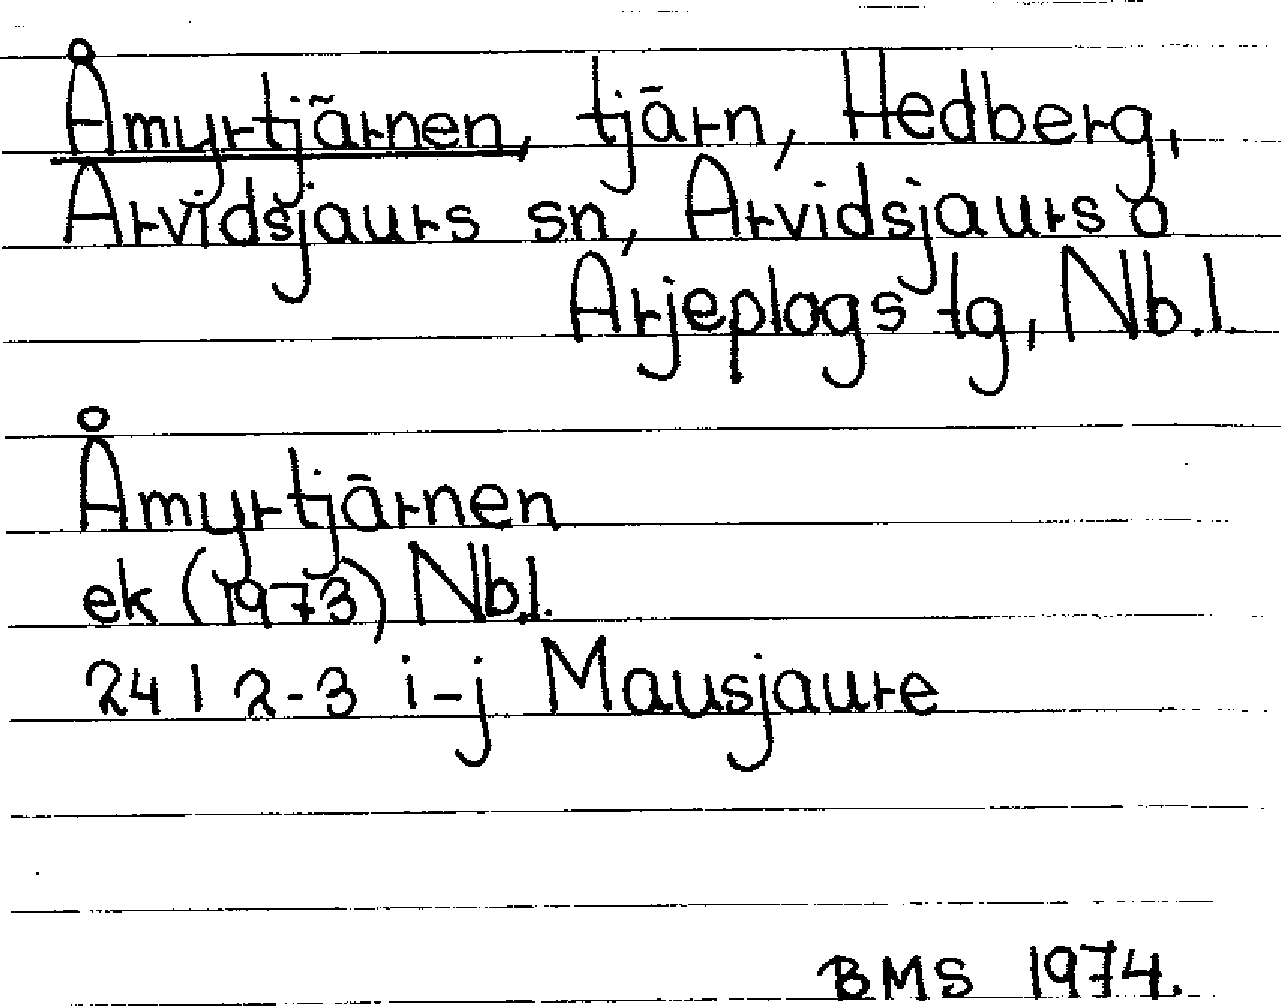 Åmyrtjärnen, tjärn, Hedberg,
Arvidsjaurs sn, Arvidsjaurs o
Arjeplogs tg, Nb.l.
Åmyrtjärnen
ek (1973) Nb.l.
24 I 2-3 i-j Mausjaure
BMS 1974.